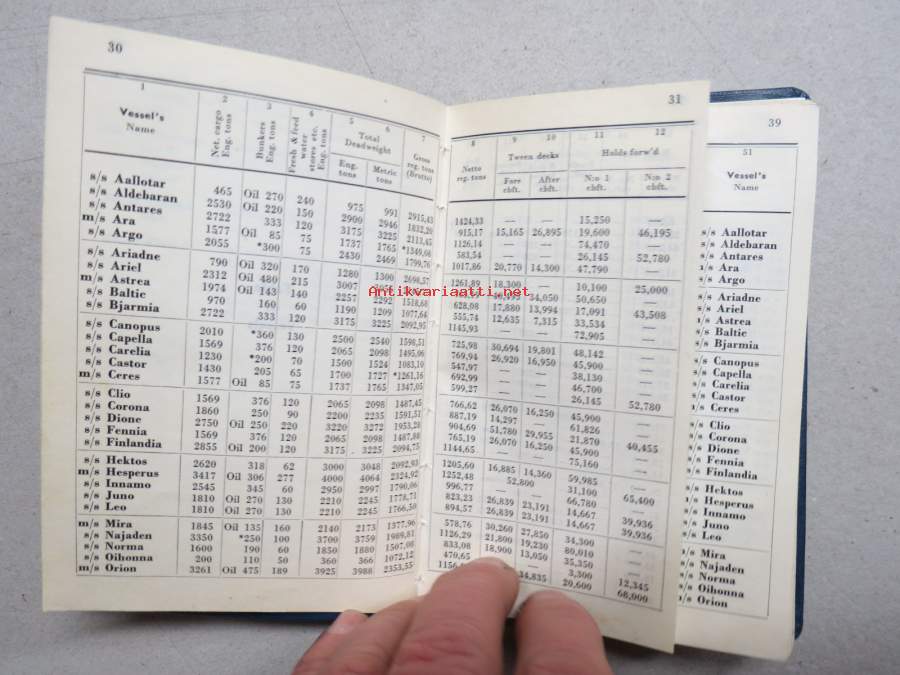 30
1 2 3 4 5 6 7
Vessel's Name Net. cargo Eng. tons Bunkers Eng. tons Fresh & feed water stores etc. Eng. tons Total Deadweight Eng. tons Metric tons Gross reg. tons (Brutto)
s/s Aallotar 465 Oil 270 240 975 991 2915,43
s/s Aldebaran 2530 Oil 220 150 2900 2946 1832,20
s/s Antares 2722 333 120 3175 3225 2113,45
m/s Ara 1577 Oil 85 75 1737 1765 *1349,08
s/s Argo 2055 *300 75 2430 2469 1799,76
s/s Ariadne 790 Oil 320 170 1280 1300 2698,57
s/s Ariel 2312 Oil 480 215 3007
m/s Astrea 1974 Oil 143 140 2257 2292 1518,68
s/s Baltic 970 160 60 1190 1209 1077,64
s/s Bjarmia 2722 333 120 3175 3225 2092,95
s/s Canopus 2010 *360 130 2500 2540 1598,51
s/s Capella 1569 376 120 2065 2098 1495,06
s/s Carelia 1230 *200 70 1500 1524 1083,10
s/s Castor 1430 205 65 1700 1727 *1261,16
m/s Ceres 1577 Oil 85 75 1737 1765 1347,05
s/s Clio 1569 376 120 2065 2098 1487,45
s/s Corona 1860 250 90 2200 2235 1591,51
s/s Dione 2750 Oil 250 220 3220 3272 1953,28
s/s Fennia 1569 376 120 2065 2098 1487,88
s/s Finlandia 2855 Oil 200 120 3175 3225 2094,75
s/s Hektos 2620 318 62 3000 3048 2092,93
m/s Hesperus 3417 Oil 306 277 4000 4064 2324,92
s/s Innamo 2545 345 60 2950 2997 1790,06
s/s Juno 1810 Oil 270 130 2210 2245 1778,71
s/s Leo 1810 Oil 270 130 2210 2245 1766,50
m/s Mira 1845 Oil 135 160 2140 2173 1377,96
s/s Najaden 3350 *250 100 3700 3759 1989,81
s/s Norma 1600 190 60 1850 1880 1507,08
s/s Oihonna 200 110 50 360 366 1072,12
m/s Orion 3261 Oil 475 189 3925 3988 2353,55
31
8 9 10 11 12
Netto reg. tons Tween decks Fore cbft. After cbft. Holds forw'd N:o 1 cbft. N:o 2 cbft.
1424,33 — — 15,250 —
915,17 15,165 26,895 19,600 46,195
1126,14 — — 74,470 —
583,54 — — 26,145 52,780
1017,86 20,770 14,300 47,790 —
1261,89 18,300 — 10,100 25,000
34,050 50,650 —
628,08 17,880 13,994 17,091 43,508
555,74 12,635 7,315 33,534 —
1145,93 — — 72,905 —
725,98 30,694 19,801 48,142 —
769,94 26,920 16,950 45,900 —
547,97 — — 38,130 —
692,99 — — 46,700 —
599,27 — — 26,145 52,780
766,62 26,070 16,250 45,900 —
887,19 14,297 — 61,826 —
904,69 51,780 29,955 21,870 40,455
765,19 26,070 16,250 45,900 —
1144,65 — — 75,160 —
1205,60 16,885 14,360 59,985 —
1252,48 52,800 31,100 65,400
996,77 — — 66,780 —
823,23 26,839 23,191 14,667 39,936
894,57 26,839 23,191 14,667 39,936
578,76 30,260 27,850 34,300 —
1126,29 21,800 19,230 80,010 —
833,08 18,900 13,050 35,350 —
470,65 3,300 12,345
34,835 20,600 68,000
Antikvariaatti.net
39
51
Vessel's Name
s/s Aallotar
s/s Aldebaran
s/s Antares
m/s Ara
s/s Argo
s/s Ariadne
s/s Ariel
m/s Astrea
s/s Baltic
s/s Bjarmia
s/s Canopus
s/s Capella
s/s Carelia
s/s Castor
m/s Ceres
s/s Clio
s/s Corona
s/s Dione
s/s Fennia
s/s Finlandia
s/s Hektos
m/s Hesperus
s/s Innamo
s/s Juno
s/s Leo
m/s Mira
s/s Najaden
s/s Norma
s/s Oihonna
m/s Orion